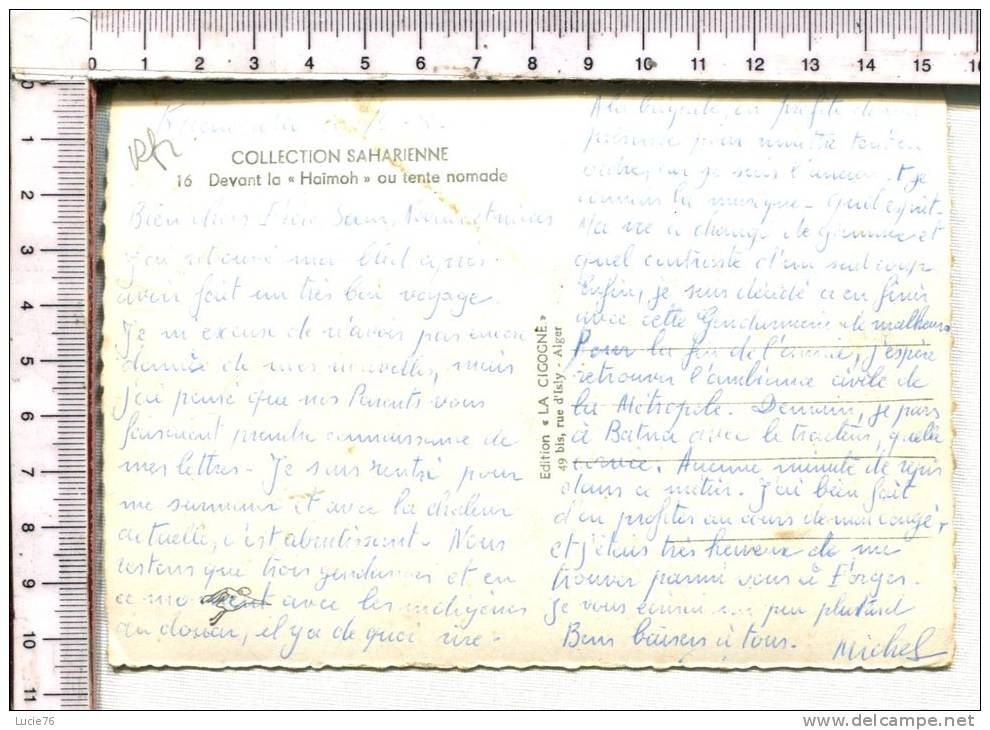 COLLECTION SAHARIENNE
16 Devant la « Haïmoh » ou tente nomade
Bien chers Frère, Sœur, Neveu et nièces
J'ai retrouvé mon bled après
avoir fait un très bon voyage.
Je m'excuse de n'avoir pas encore
donné de mes nouvelles, mais
j'ai pensé que nos Parents vous
feraient prendre connaissance de
mes lettres. Je suis rentré pour
me surmener et avec la chaleur
actuelle, c'est abrutissant. Nous
restons que trois gendarmes et en
ce moment avec les indigènes
du douar, il y a de quoi rire.
Edition « LA CIGOGNE »
49 bis, rue d'Isly - Alger
A la brigade, on profite de ma
présence pour remettre tout en
ordre, car je suis l'ancien et je
connais la musique.
Ma vie a changé de gamme et
quel contraste d'un seul coup.
Enfin, je suis décidé à en finir
avec cette Gendarmerie de malheur.
Pour la fin de l'année, j'espère
retrouver l'ambiance civile de
la Métropole. Demain, je pars
à Batna avec le tracteur, quelle
corvée. Aucune minute de répit
dans ce métier. J'ai bien fait
d'en profiter au cours de mon congé,
et j'étais très heureux de me
trouver parmi vous à Forges.
Je vous écrirai un peu plus tard
Bons baisers à tous.
Michel
0 1 2 3 4 5 6 7 8 9 10 11 12 13 14 15 16
0
1
2
3
4
5
6
7
8
9
10
11
Lucie76
www.delcampe.net